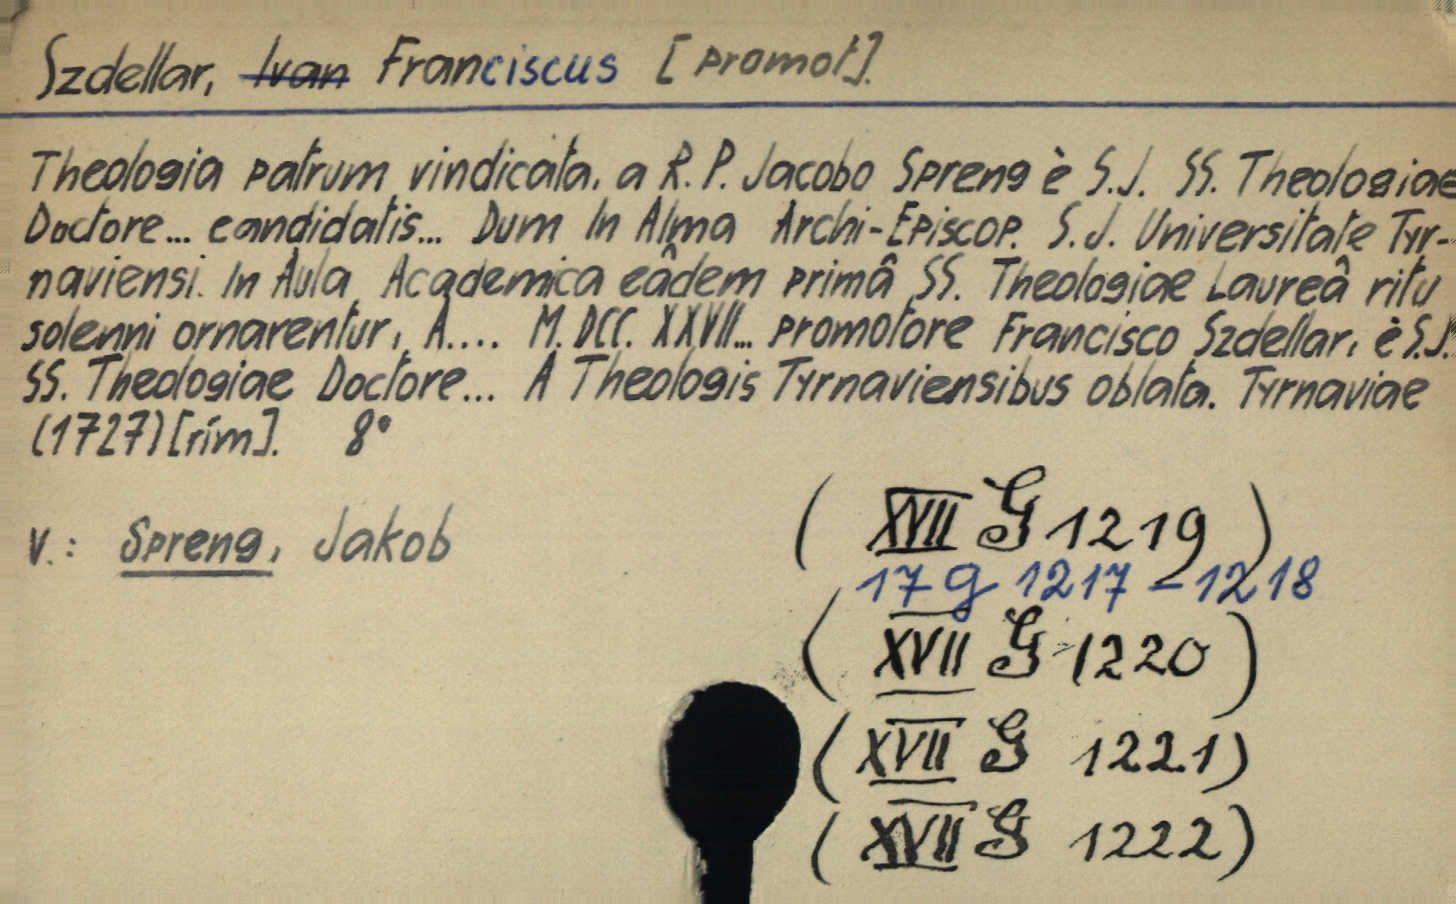 Szdellar, Ivan Franciscus [promot].
Theologia patrum vindicata, a R. P. Jacobo Spreng è S.J. SS. Theologiae
Doctore... candidatis... Dum In Alma Archi-Episcop. S.J. Universitate Tyr-
naviensi. In Aula Academica eâdem primâ SS. Theologiae Laureâ ritu
solenni ornarentur, A.... M.DCC.XXVII... promotore Francisco Szdellar, è S.J.
SS. Theologiae Doctore... A Theologis Tyrnaviensibus oblata. Tyrnaviae
(1727)[rím]. 8°
V.: Spreng, Jakob
(XVII G 1219)
17 G 1217 - 1218
(XVII G 1220)
(XVII G 1221)
(XVII G 1222)